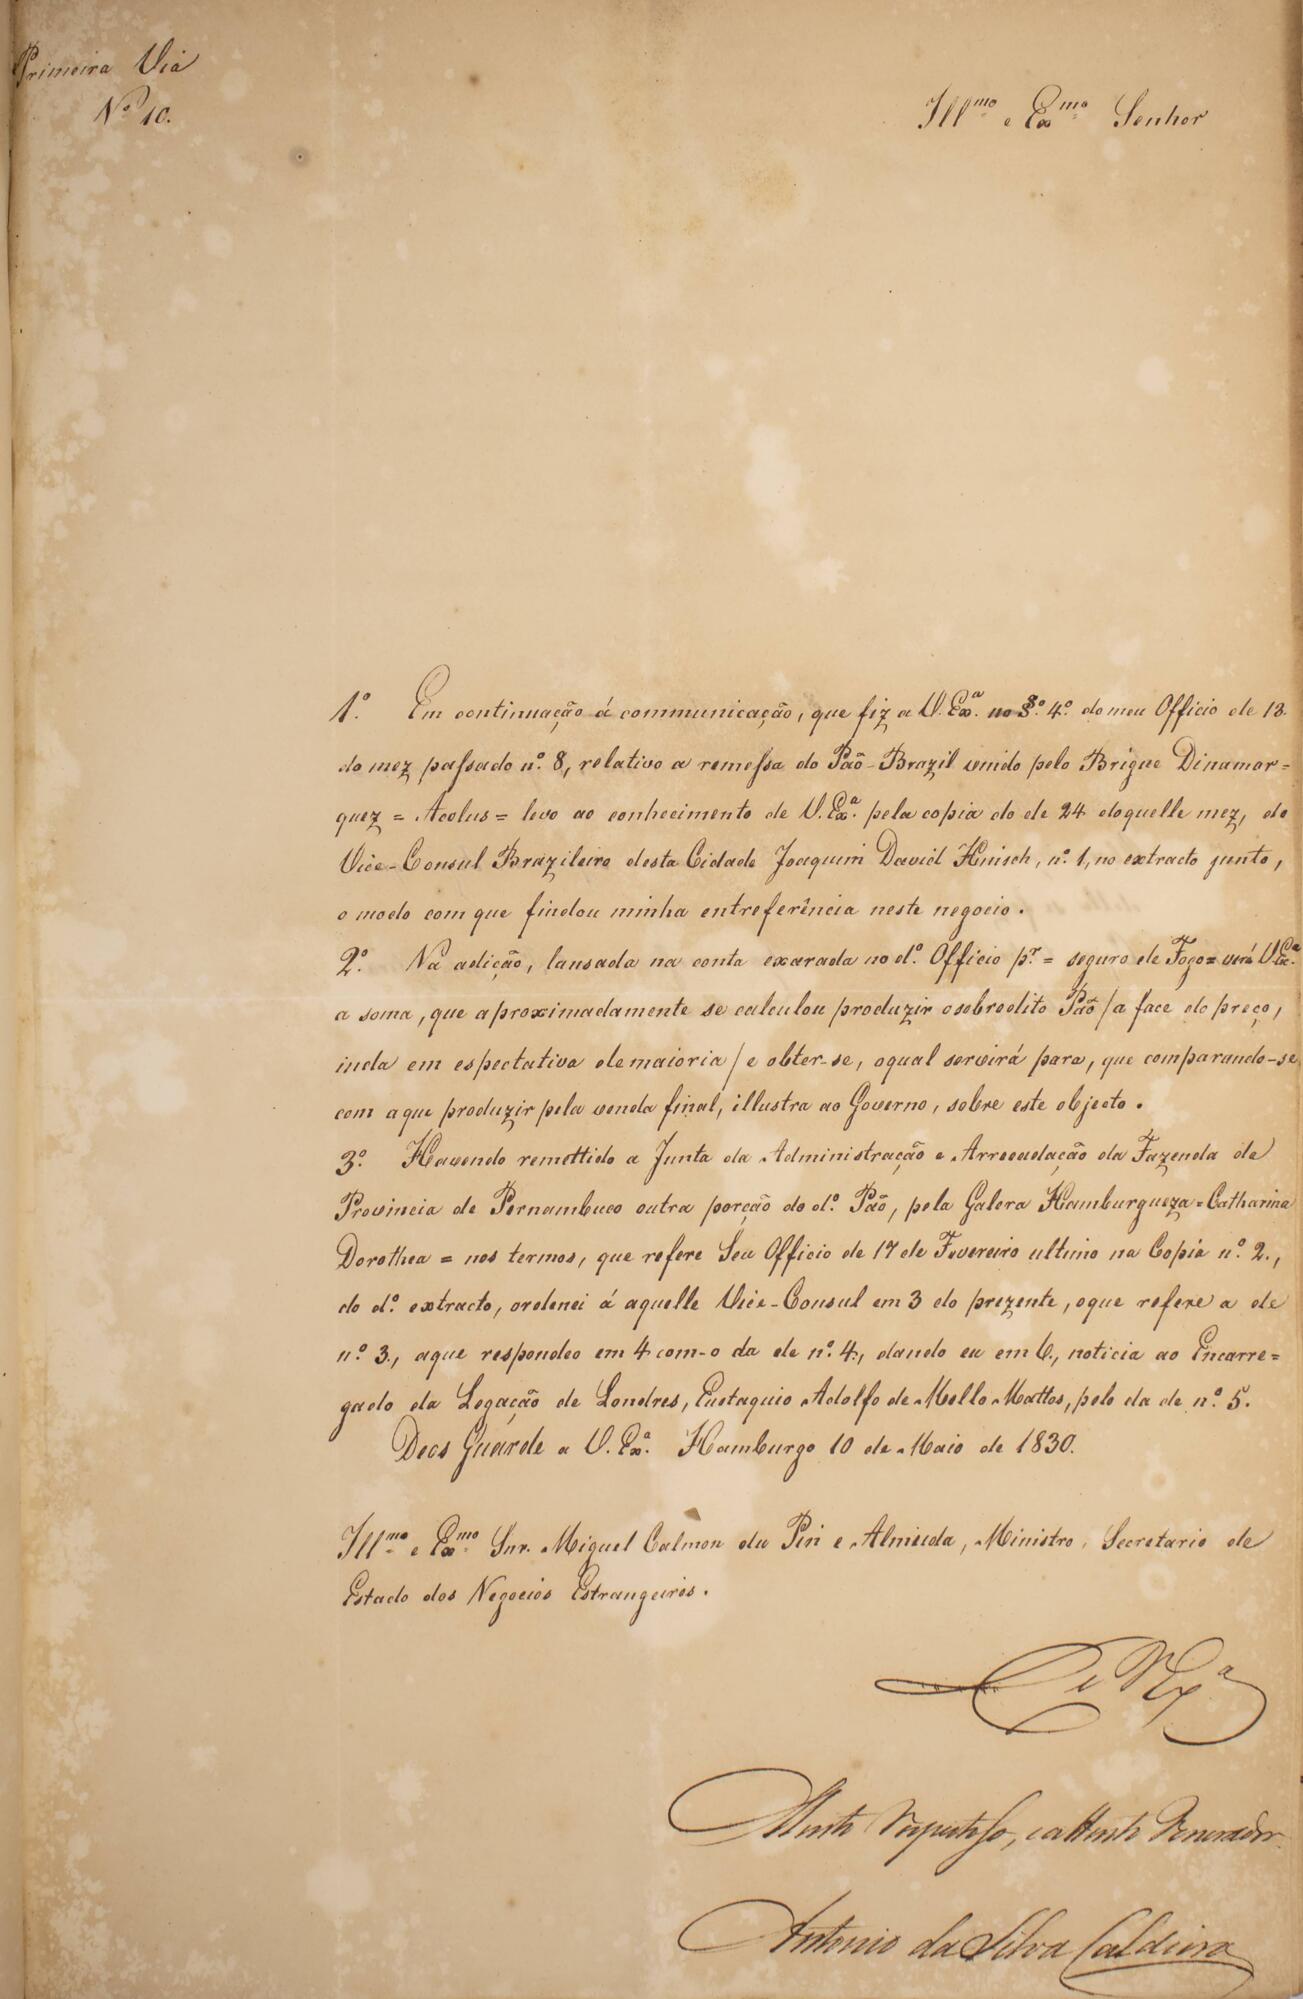 Primeira Via
Nº 10.
Illmo e Exmo Senhor
1º. Em continuação á communicação, que fiz a V. Exª. no §º. 4º. do meu Officio de 13.
do mez passado nº. 8, relativo a remessa do Páo-Brazil vindo pelo Brigue Dinamar=
quez = Acolus = levo ao conhecimento de V. Exª. pela copia do de 24 daquelle mez, do
Vice-Consul Brazileiro desta Cidade Joaquim David Hinisch, nº. 1, no extracto junto,
o modo com que findou minha entreferência neste negocio.
2º. Na adição, lansada na conta exarada no dº. Officio pr. = seguro de Fogo = verá V. Exª.
a soma, que aproximadamente se calculou produzir osobredito Páo / a face do preço,
inda em espectativa demaioria / e obter-se, oqual servirá para, que comparando-se
com aque produzir pela venda final, illustra ao Governo, sobre este objecto.
3º. Havendo remettido a Junta da Administração e Arrecadação da Fazenda de
Provincia de Pernambuco outra porção do dº. Páo, pela Galera Hamburgueza = Catharina
Dorothea = nos termos, que refere Seu Officio de 17 de Fevereiro ultimo na Copia nº. 2.,
do dº. extracto, ordenei á aquelle Vice-Consul em 3 do prezente, oque refere a de
nº. 3., aque respondeo em 4 com-o da de nº. 4., dando eu em 6., noticia ao Encarre=
gado da Legação de Londres, Eustaquio Adolfo de Mello Mattos, pelo da de nº. 5.
Deos Guarde a V. Exª. Hamburgo 10 de Maio de 1830.
Illmo e Exmo Snr. Miguel Calmon du Pin e Almeida, Ministro, Secretario de
Estado dos Negocios Estrangeiros.
De V Exª
Muito Respeitoso, e attento Venerador
Antonio da Silva Caldeira